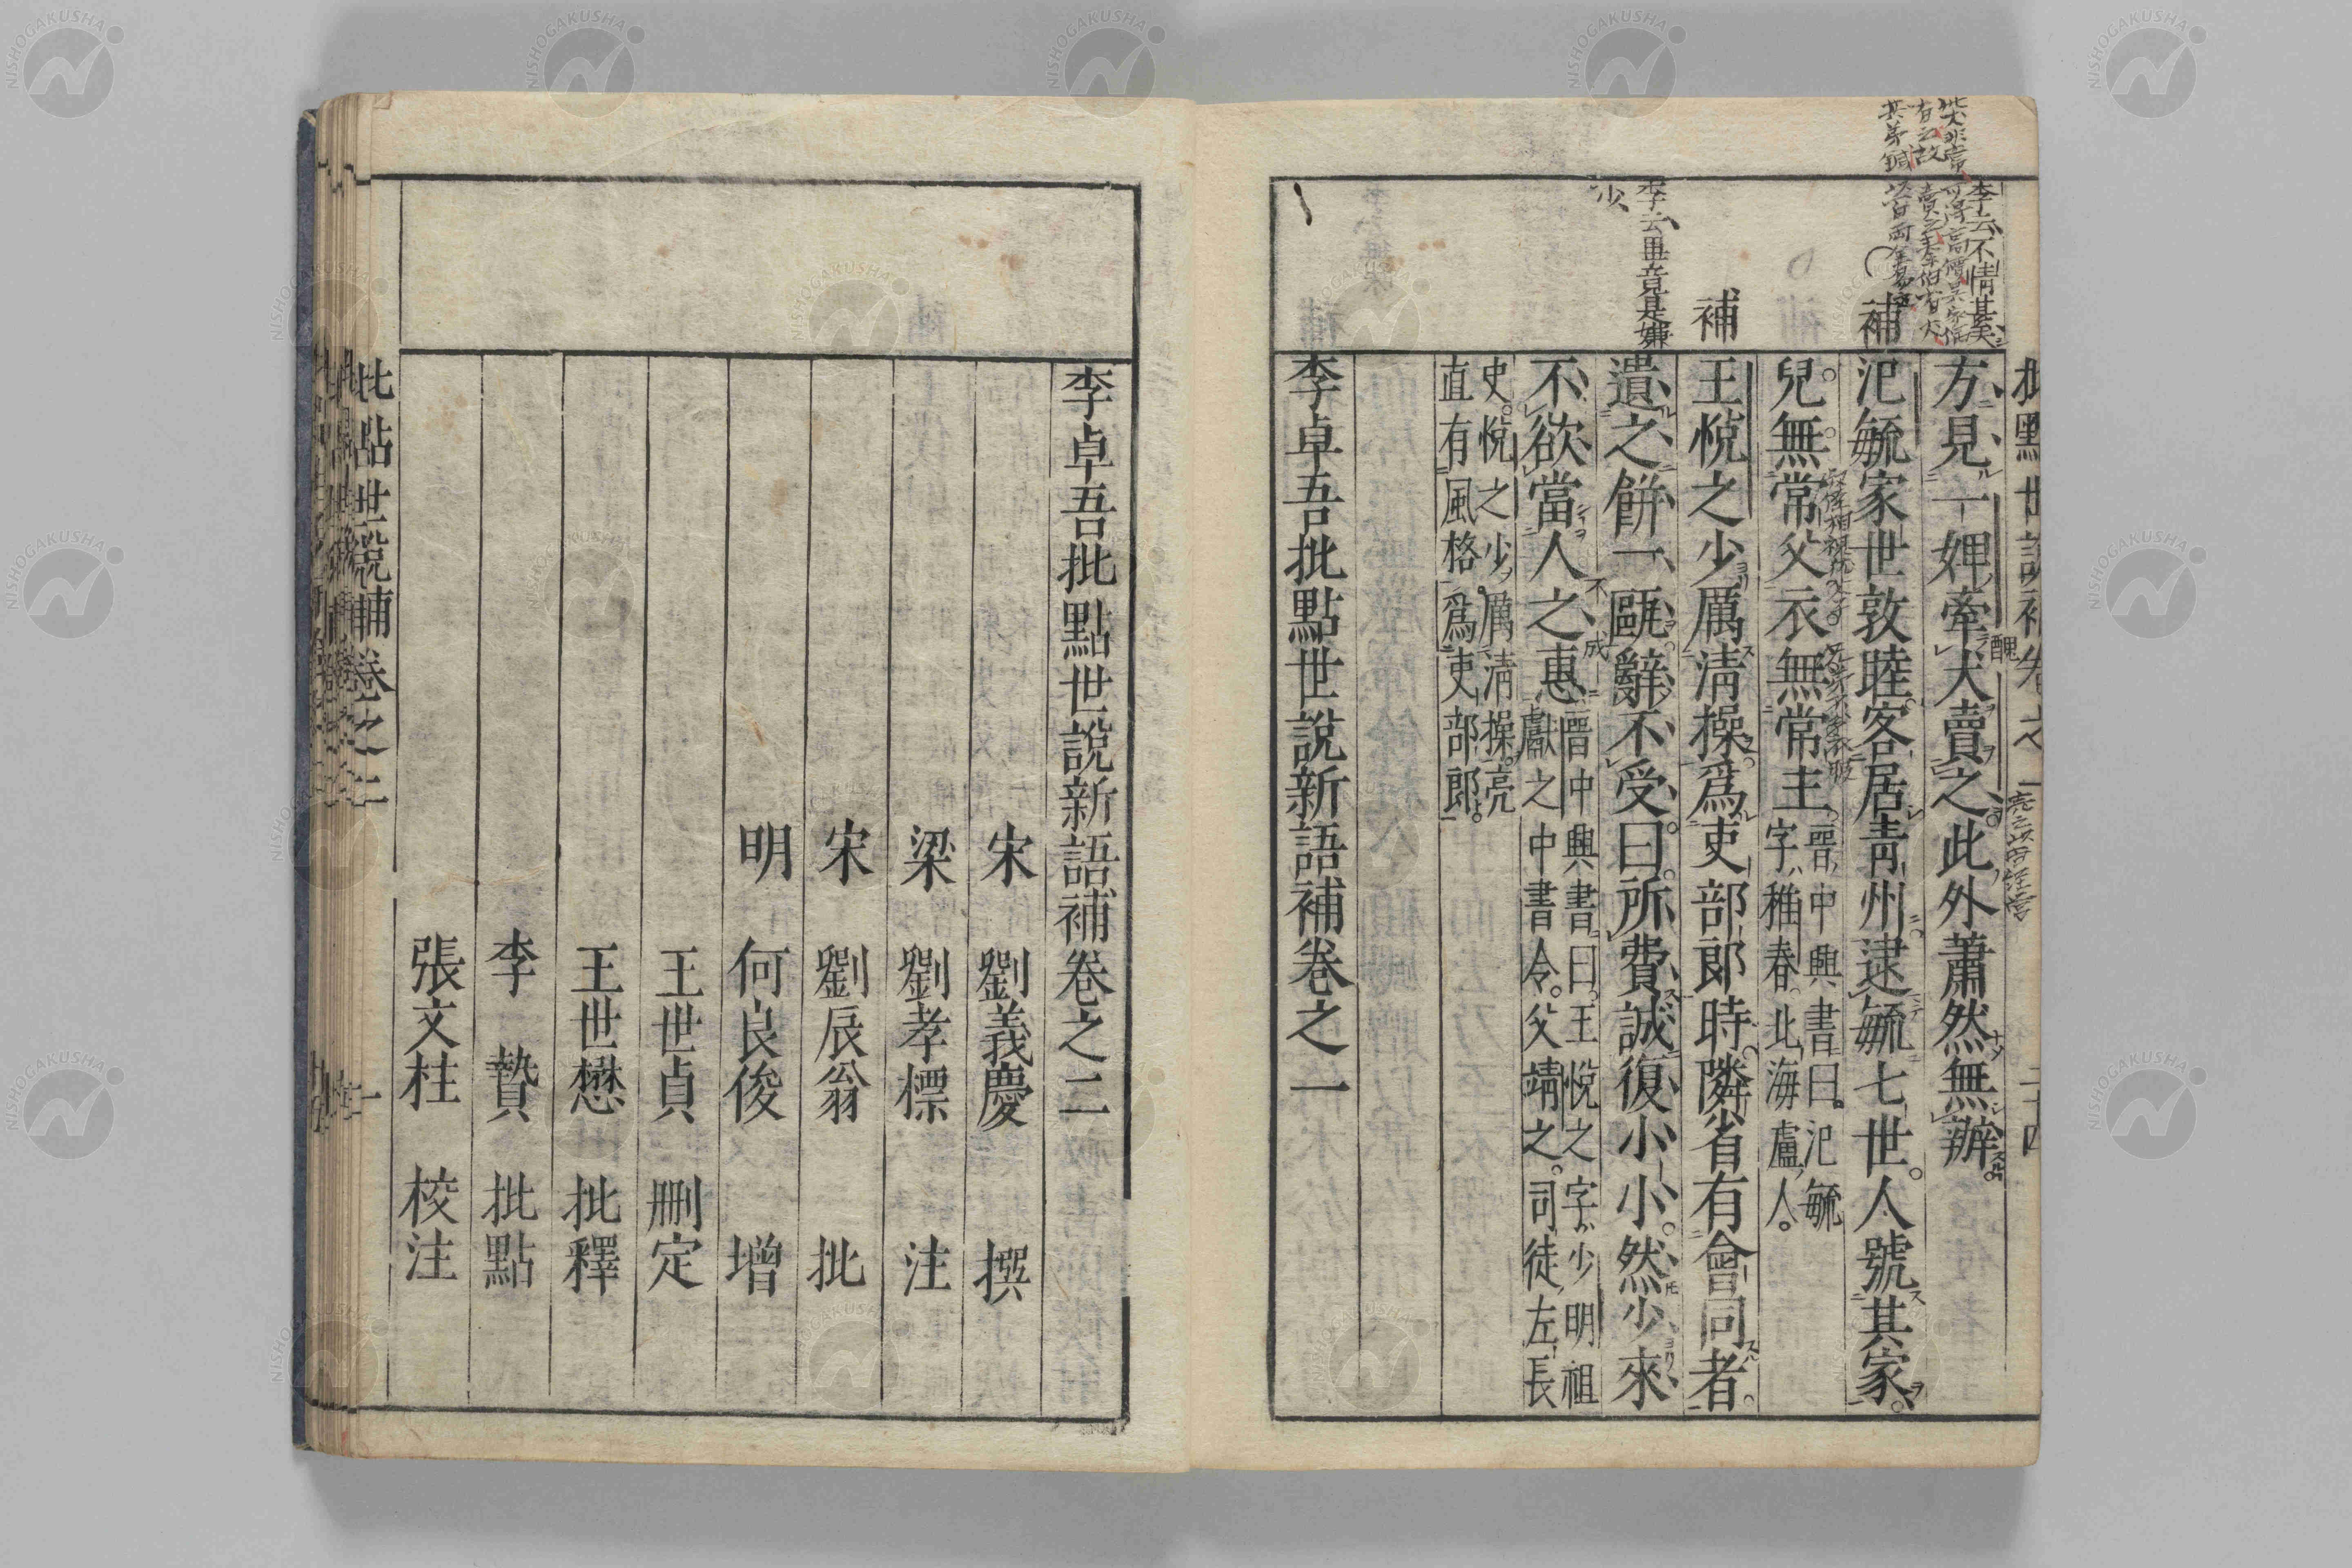 方見一婢牽犬賣之此外蕭然無辦
補
氾毓家世敦睦客居青州逮毓七世人號其家
兒無常父衣無常主
晉中興書曰氾毓
字稚春北海盧人
補
王悅之少厲清操爲吏部郎時隣省有會同者
遺之餅一甌辭不受曰所費誠復小小然少來
不欲當人之惠
晉中興書曰王悅之字少明祖
獻之中書令父靖之司徒左長
史悅之少厲清操亮
直有風格爲吏部郎
李云不情甚矣
李云畢竟是嫌
少
李卓吾批點世說新語補卷之一
李卓吾批點世說新語補卷之二
宋 劉義慶 撰
梁 劉孝標 注
宋 劉辰翁 批
明 何良俊 增
王世貞 刪定
王世懋 批釋
李贄 批點
張文柱 校注
批點世說補卷之二
一
NISHOGAKUSHA